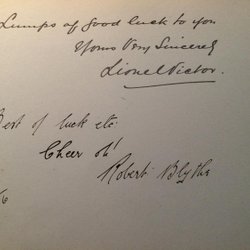 Lumps of good luck to you
Yours Very Sincerely
Lionel Victor.
Best of luck etc.
Cheer oh!
Robert Blythe
6